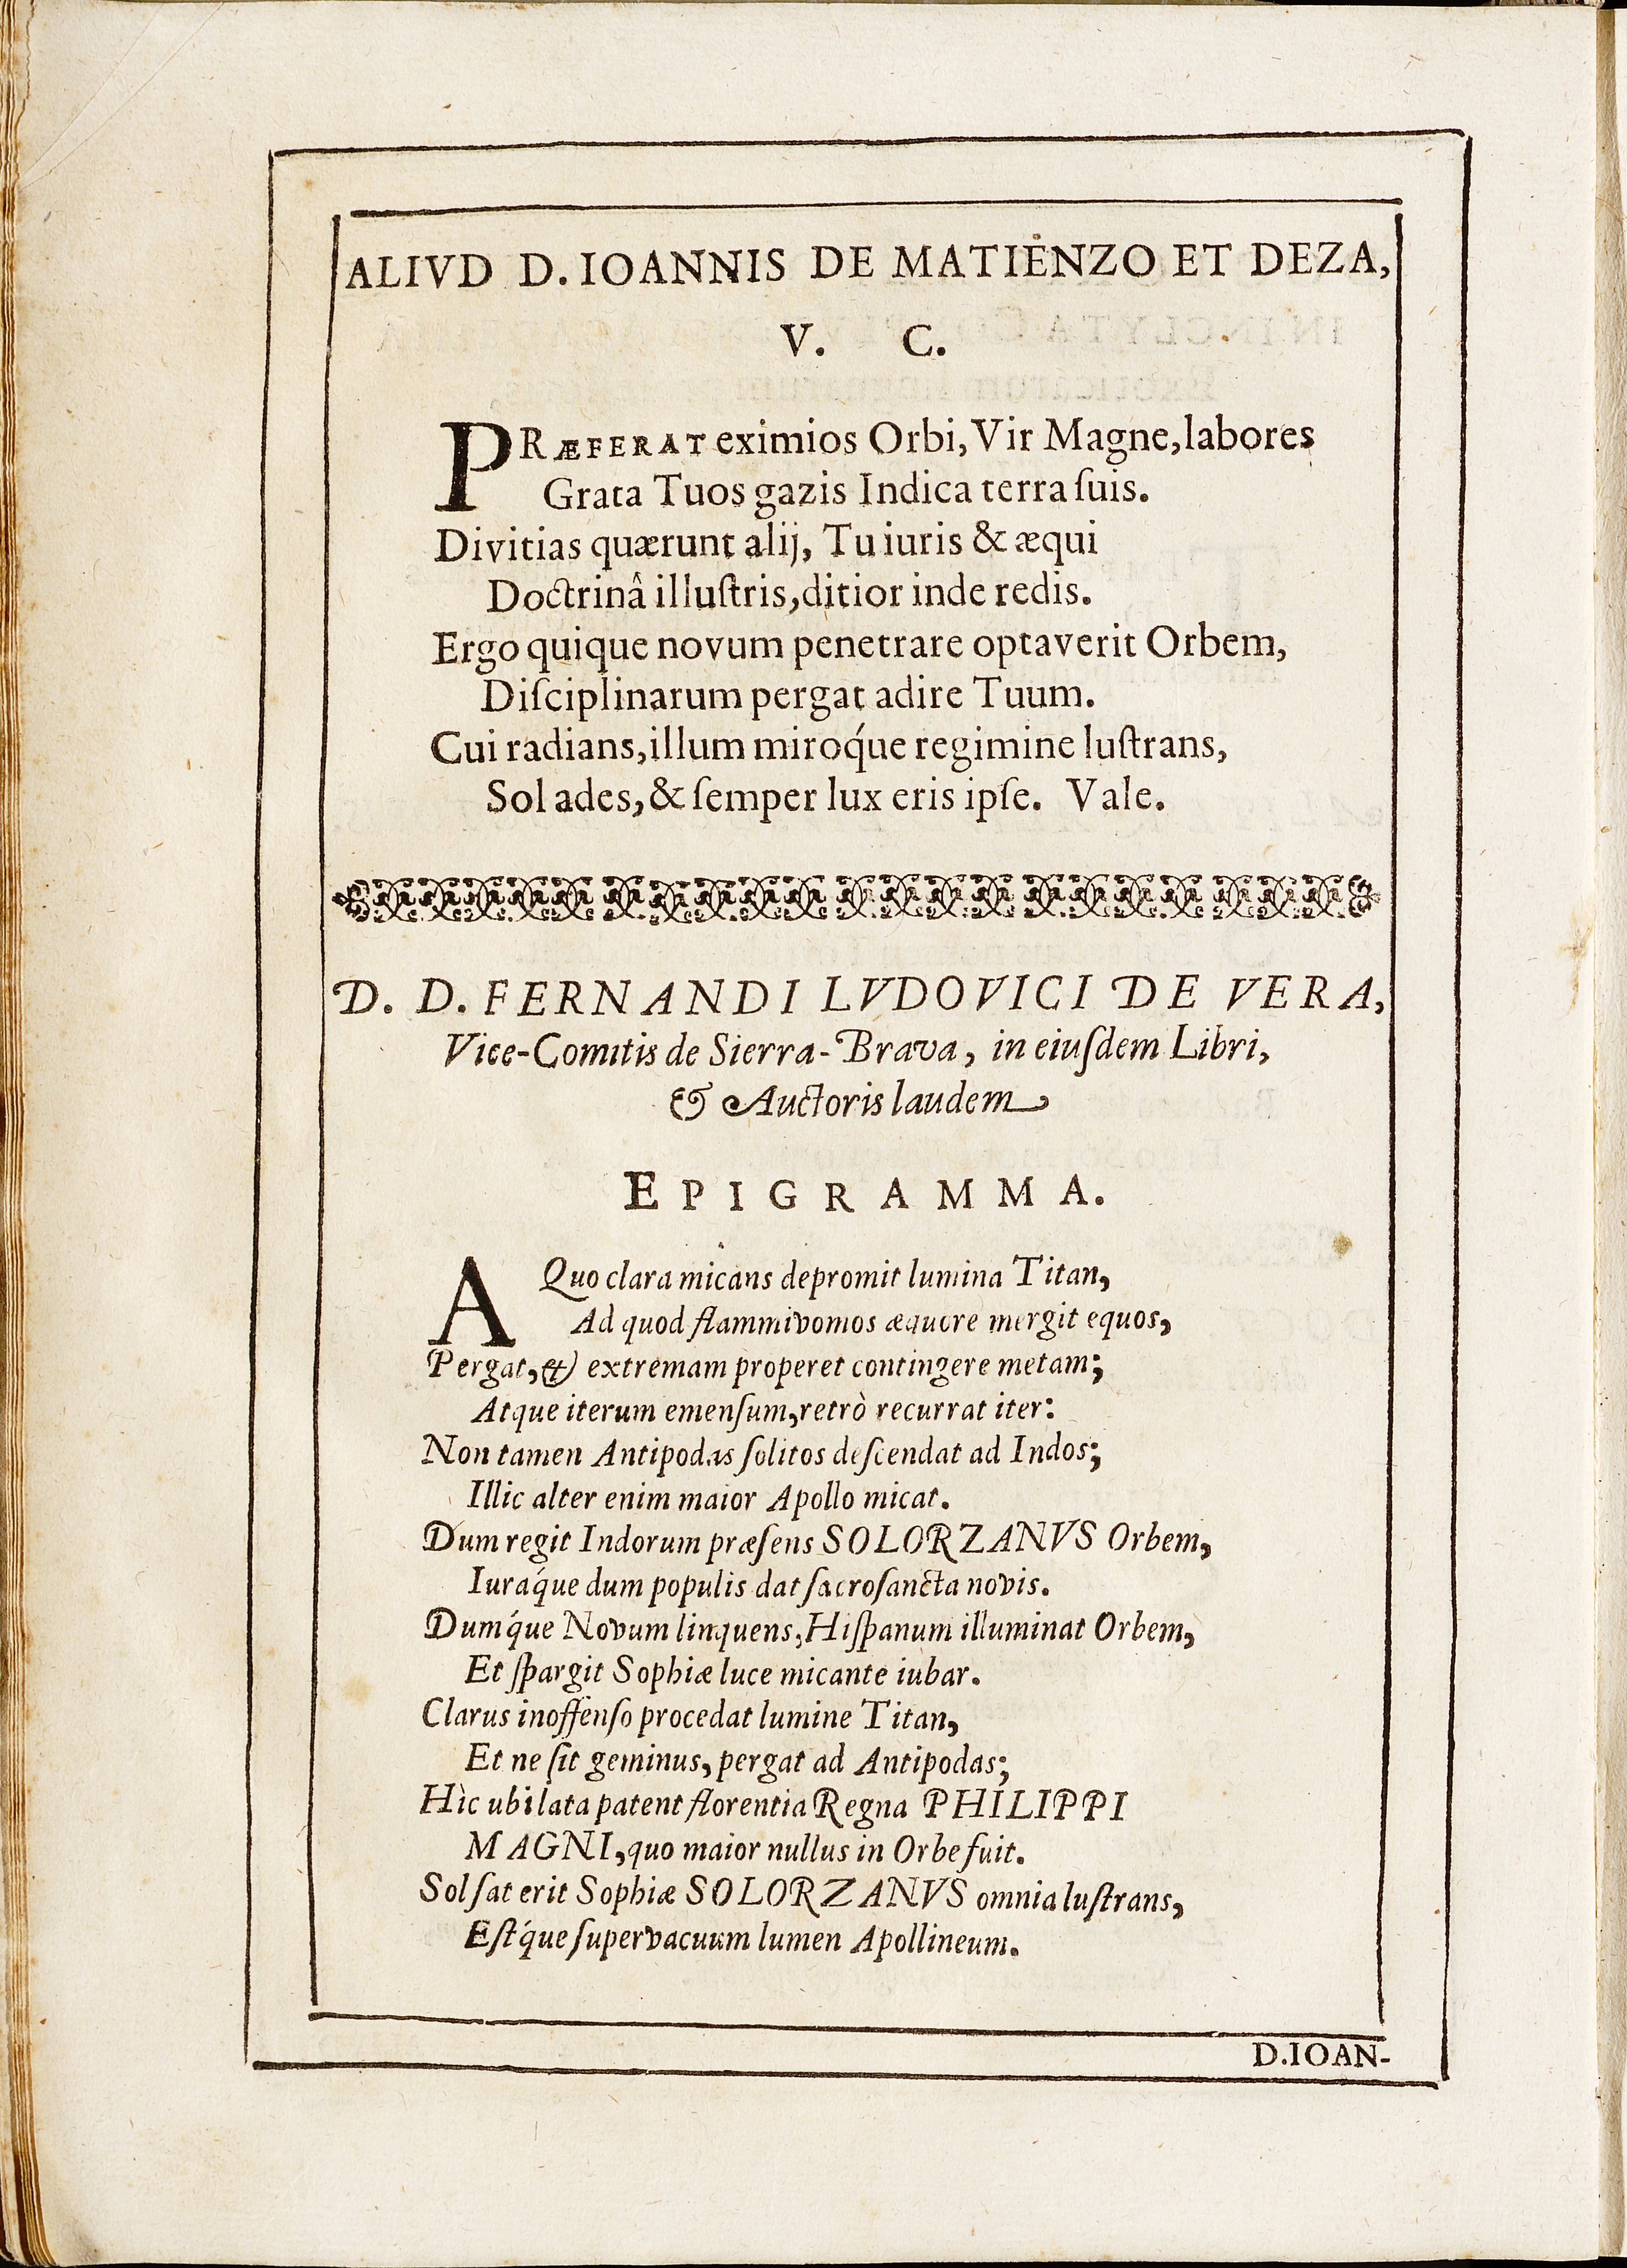 ALIVD D. IOANNIS DE MATIENZO ET DEZA,
V. C.
PRÆFERAT eximios Orbi, Vir Magne, labores
Grata Tuos gazis Indica terra ſuis.
Divitias quærunt alij, Tu iuris & æqui
Doctrinâ illuſtris, ditior inde redis.
Ergo quique novum penetrare optaverit Orbem,
Diſciplinarum pergat adire Tuum.
Cui radians, illum miroq́ue regimine luſtrans,
Sol ades, & ſemper lux eris ipſe. Vale.
D. D. FERNANDI LVDOVICI DE VERA,
Vice-Comitis de Sierra-Brava, in eiuſdem Libri,
& Auctoris laudem
EPIGRAMMA.
A Quo clara micans depromit lumina Titan,
Ad quod flammivomos æquore mergit equos,
Pergat, & extremam properet contingere metam;
Atque iterum emenſum, retrò recurrat iter:
Non tamen Antipodas ſolitos deſcendat ad Indos;
Illic alter enim maior Apollo micat.
Dum regit Indorum præſens SOLORZANVS Orbem,
Iuraq́ue dum populis dat ſacroſancta novis.
Dumq́ue Novum linquens, Hiſpanum illuminat Orbem,
Et ſpargit Sophiæ luce micante iubar.
Clarus inoffenſo procedat lumine Titan,
Et ne ſit geminus, pergat ad Antipodas;
Hìc ubi lata patent florentia Regna PHILIPPI
MAGNI, quo maior nullus in Orbe fuit.
Sol ſat erit Sophiæ SOLORZANVS omnia luſtrans,
Eſtq́ue ſupervacuum lumen Apollineum.
D. IOAN-